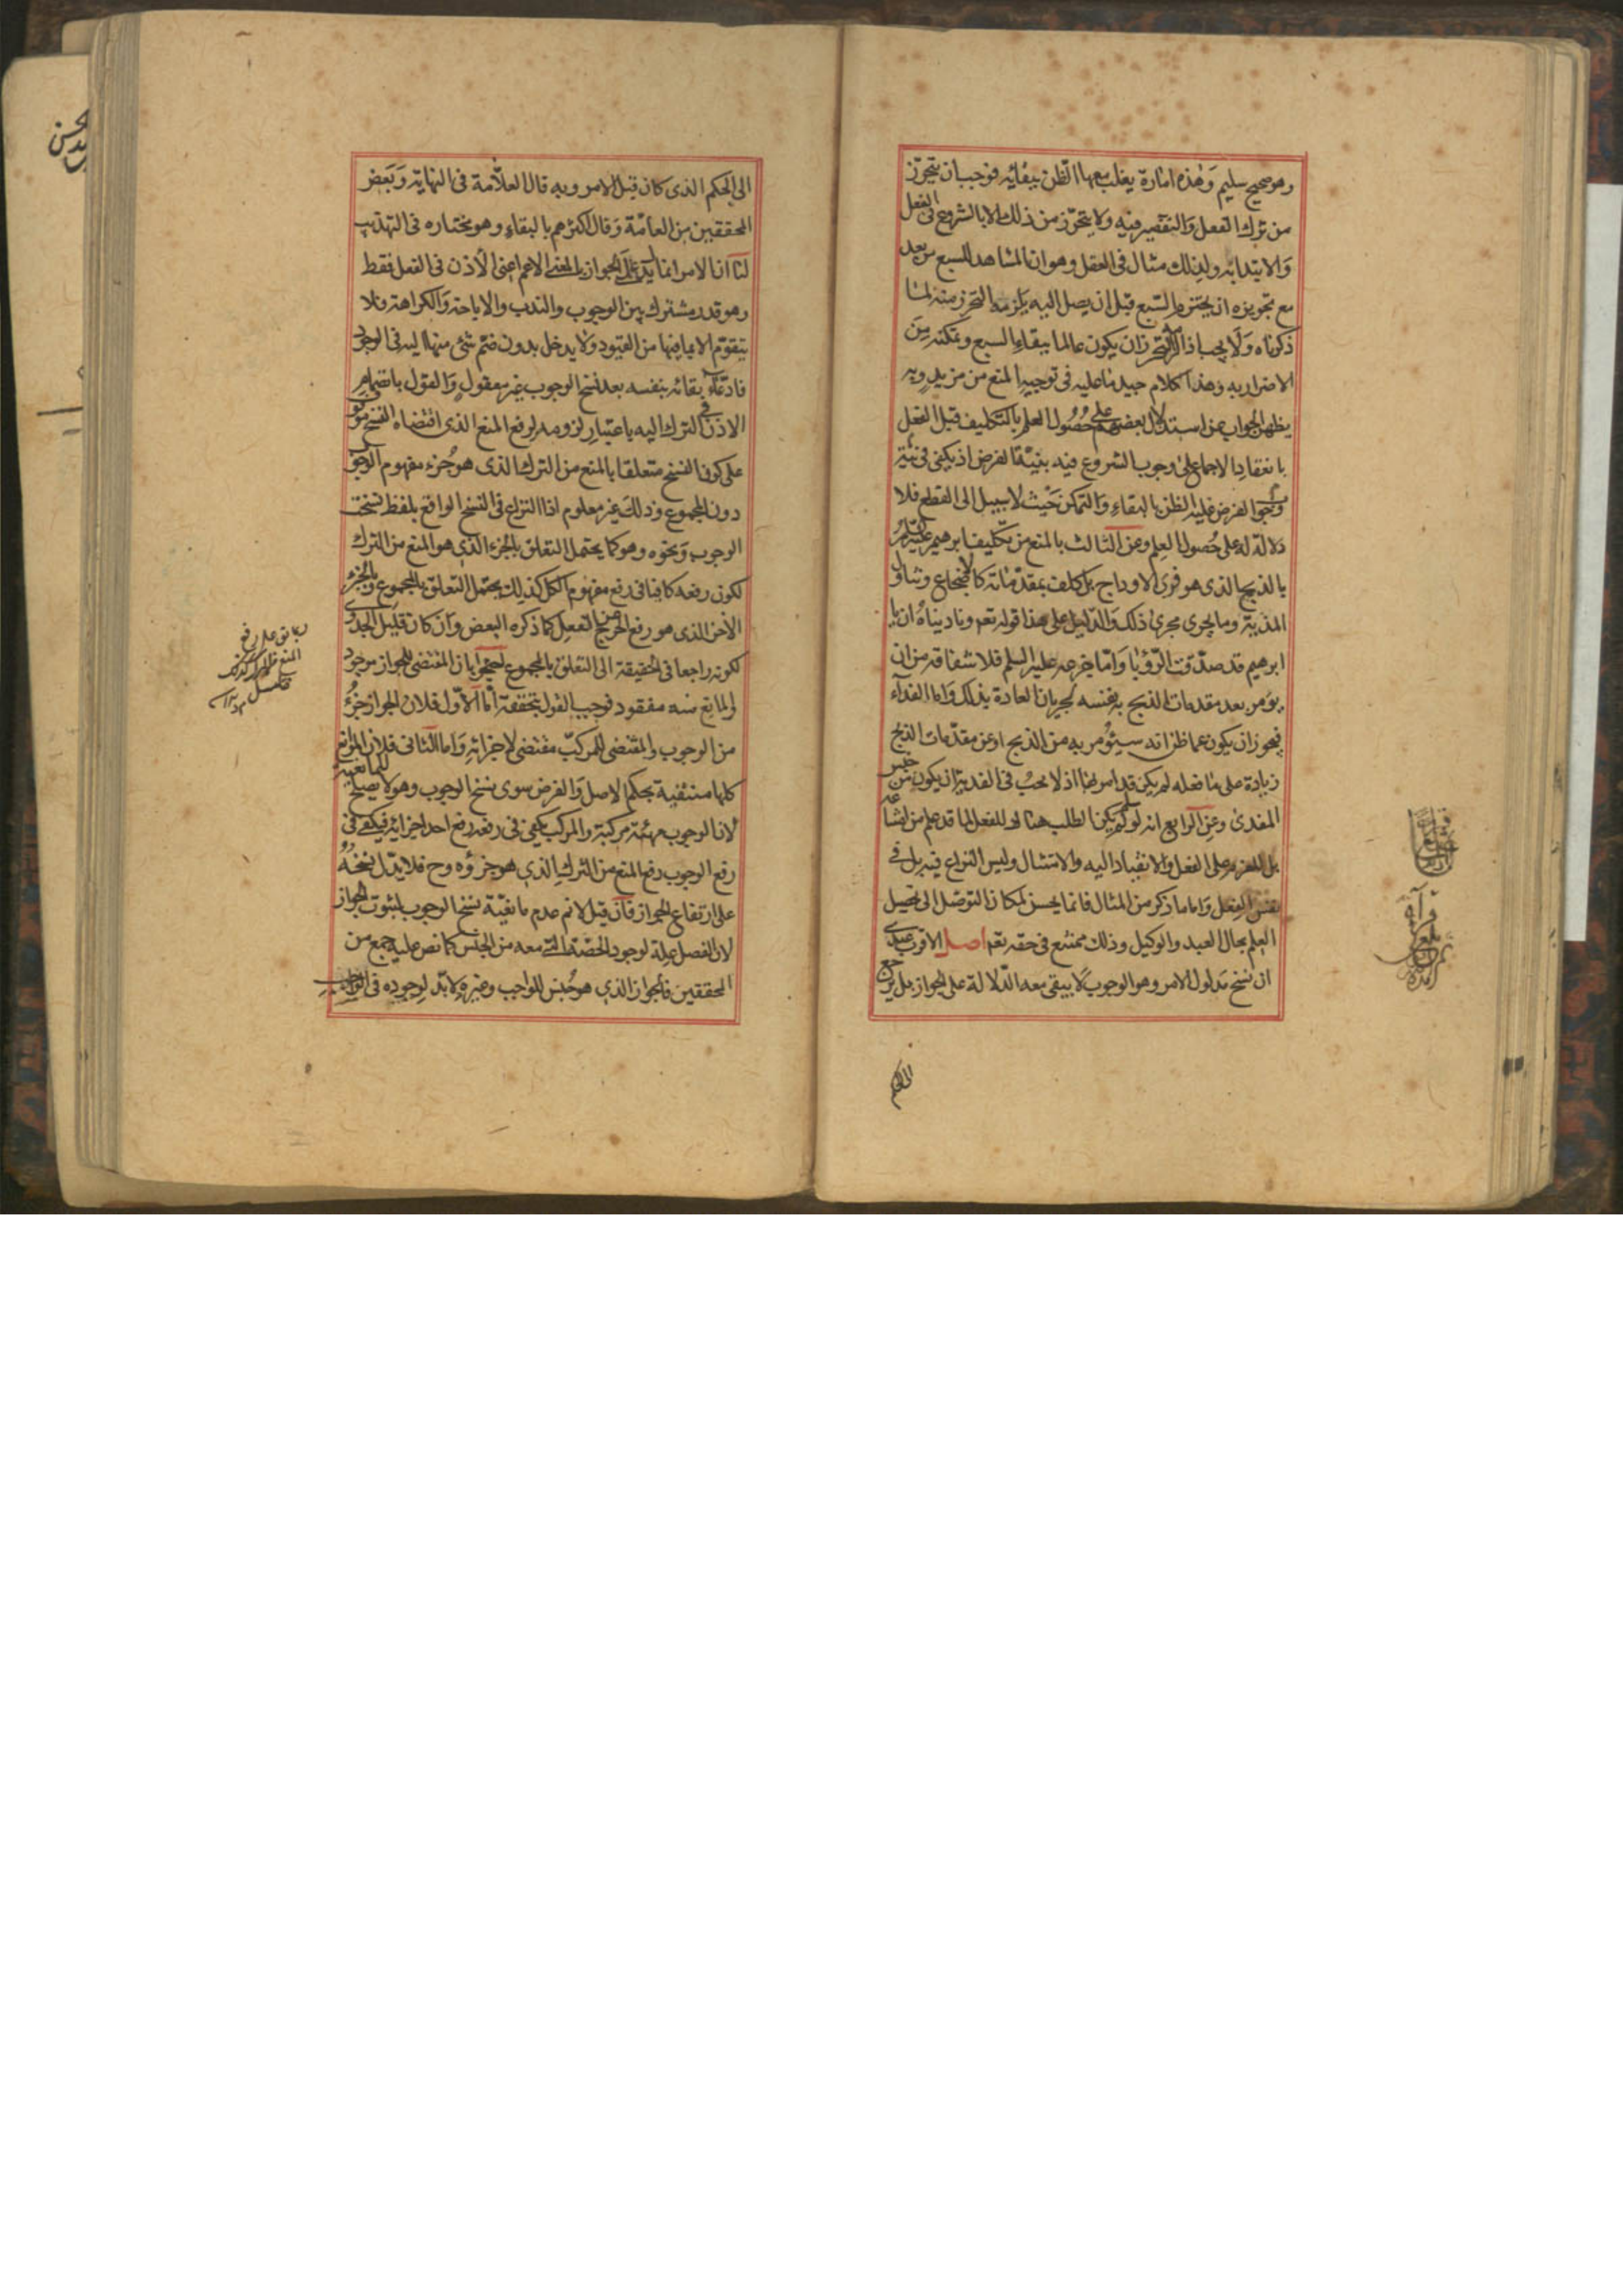 وهو صحيح سليم وهذه امارة يغلب معها الظن ببقائه فوجب ان يتحرز
من ترك الفعل والتقصير فيه ولا يتحرز من ذلك الا بالشروع فى الفعل
والابتداء به ولذلك مثال فى العقل وهو ان المشاهد للسبع من بعد
مع تجويزه ان يخترم السبع قبل ان يصل اليه يلزمه التحرز منه لما
ذكرناه ولا يجب اذا لزمه التحرز ان يكون عالما ببقاء السبع وتمكنه من
الاضرار به وهذا كلام جيد ما عليه فى توجيه المنع من مزيد وبه
يظهر الجواب عن استدلال بعضهم على حصول العلم بالتكليف قبل الفعل
بانعقاد الاجماع على وجوب الشروع فيه بنية الفرض اذ يكفى فى نية
وجوب الفرض غلبة الظن بالبقاء والتمكن حيث لا سبيل الى القطع فلا
دلالة له على حصول العلم وعن الثالث بالمنع من تكليف ابرهيم عليه السلم
بالذبح الذى هو فرى الاوداج بل كلف بمقدماته كالاضجاع وتناول
المذية وما يجرى مجرى ذلك والدليل على هذا قوله تعم وناديناه ان يا
ابرهيم قد صدقت الرؤيا واما جزعه عليه السلم فلاشفاقه من ان
يؤمر بعد مقدمات الذبح به نفسه لجريان العادة بذلك واما الفداء
فيجوز ان يكون عما ظن انه سيؤمر به من الذبح او عن مقدمات الذبح
زيادة على ما فعله لم يكن قد امر بها اذ لا يجب فى الفدية ان يكون من جنس
المفدى وعن الرابع انه لو لم يكن الطلب هناك للفعل لما قد علم من امتناعه
بل للعزم على الفعل والانقياد اليه والامتثال وليس النزاع فيه بل فى
نفس الفعل واما ما ذكر من المثال فانما يحسن لمكان التوصل الى تحصيل
العلم بحال العبد والوكيل وذلك ممتنع فى حقه تعم اصل الاقرب عندى
ان نسخ مدلول الامر وهو الوجوب لا يبقى معه الدلالة على الجواز بل يرجع
الى الحكم
الى الحكم الذى كان قبل الامر وبه قال العلامة فى النهاية وبعض
المحققين من العامة وقال اكثرهم بالبقاء وهو مختاره فى التهذيب
لنا ان الامر انما يدل على الجواز بالمعنى الاعم اعنى الاذن فى الفعل فقط
وهو قدر مشترك بين الوجوب والندب والاباحة والكراهة فلا
يتقوم الا بما فيها من القيود ولا يدخل بدون ضم شئ منها اليه فى الوجود
فادعاء بقائه بنفسه بعد نسخ الوجوب غير معقول والقول بانضمام
الاذن فى الترك اليه باعتبار لزومه لرفع المنع الذى اقتضاه النسخ موقوف
على كون النسخ متعلقا بالمنع من الترك الذى هو جزء مفهوم الوجوب
دون المجموع وذلك غير معلوم اذ النزاع فى النسخ الواقع بلفظ نسخت
الوجوب ونحوه وهو كما يحتمل التعلق بالجزء الذى هو المنع من الترك
لكون رفعه كافيا فى رفع مفهوم الكل كذلك يحتمل التعلق بالمجموع وبالجزء
الاخر الذى هو رفع الحرج عن الفعل كما ذكره البعض وان كان قليل الجدوى
لكونه راجعا فى الحقيقة الى التعلق بالمجموع احتجوا بان المقتضى للجواز موجود
والمانع منه مفقود فوجب القول بتحققه اما الاول فلان الجواز جزء
من الوجوب والمقتضى للمركب مقتضى لاجزائه واما الثانى فلان الموانع
كلها منتفية بحكم الاصل والفرض سوى نسخ الوجوب وهو لا يصلح للمانعية
لان الوجوب مهية مركبة والمركب يكفى فى رفعه رفع احد اجزائه فيكفى فى
رفع الوجوب رفع المنع من الترك الذى هو جزؤه وح فلا يدل نسخه
على ارتفاع الجواز فان قيل لا نم عدم مانعية نسخ الوجوب لثبوت الجواز
لان الفصل علة لوجود الحصة التى معه من الجنس كما نص عليه جمع من
المحققين فالجواز الذى هو جنس للواجب وغيره لا بد لوجوده فى الواجب